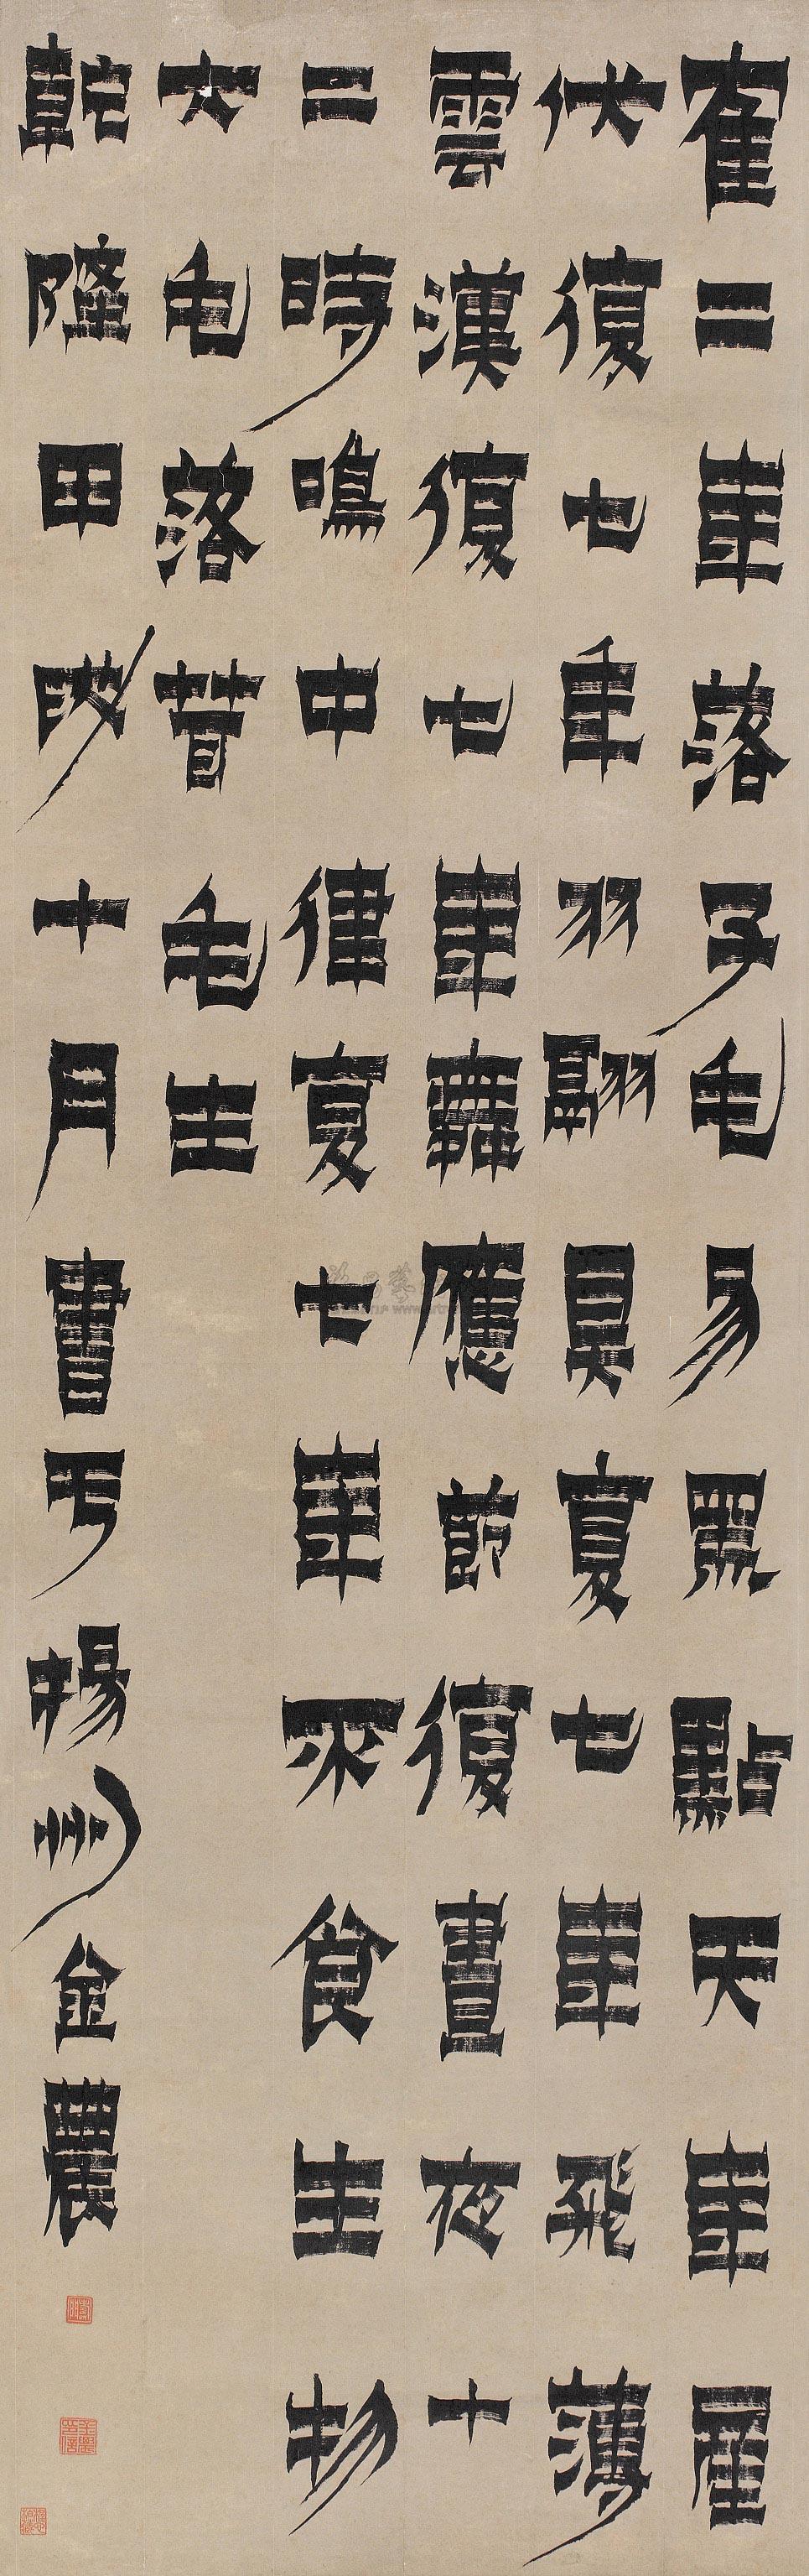 隺二年落子毛易黑點天年產
伏復七年羽翮具复七年飛薄
雲漢復七年舞應節復晝夜十
二時鳴中律复七年不食生物
大毛落茸毛生
乾隆甲戌十月書于揚州金農